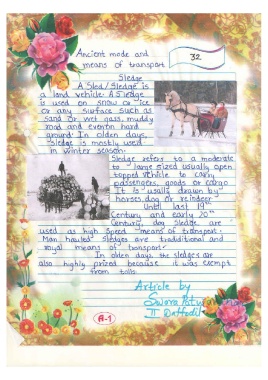 Ancient mode and
means of transport
32
Sledge
A Sled / Sledge is
a land vehicle. A Sledge
is used on snow or ice
or any surface such as
sand or wet gass, muddy
road and even on hard
ground. In olden days,
sledge is mostly used
in winter season.
Sledge refers to a moderate
to large sized usually open
topped vehicle to carry
passengers, goods or cargo
It is usally drawn by
horses, dog or reindeer
Until last 19th
Century and early 20th
Century, dog sledge are
used as high speed means of transport.
Man hauled sledges are traditional and
royal means of transport
In olden days, the sledges are
also highly prized because it was exempt
from tolls.
Article by
II Daffodil
A-1